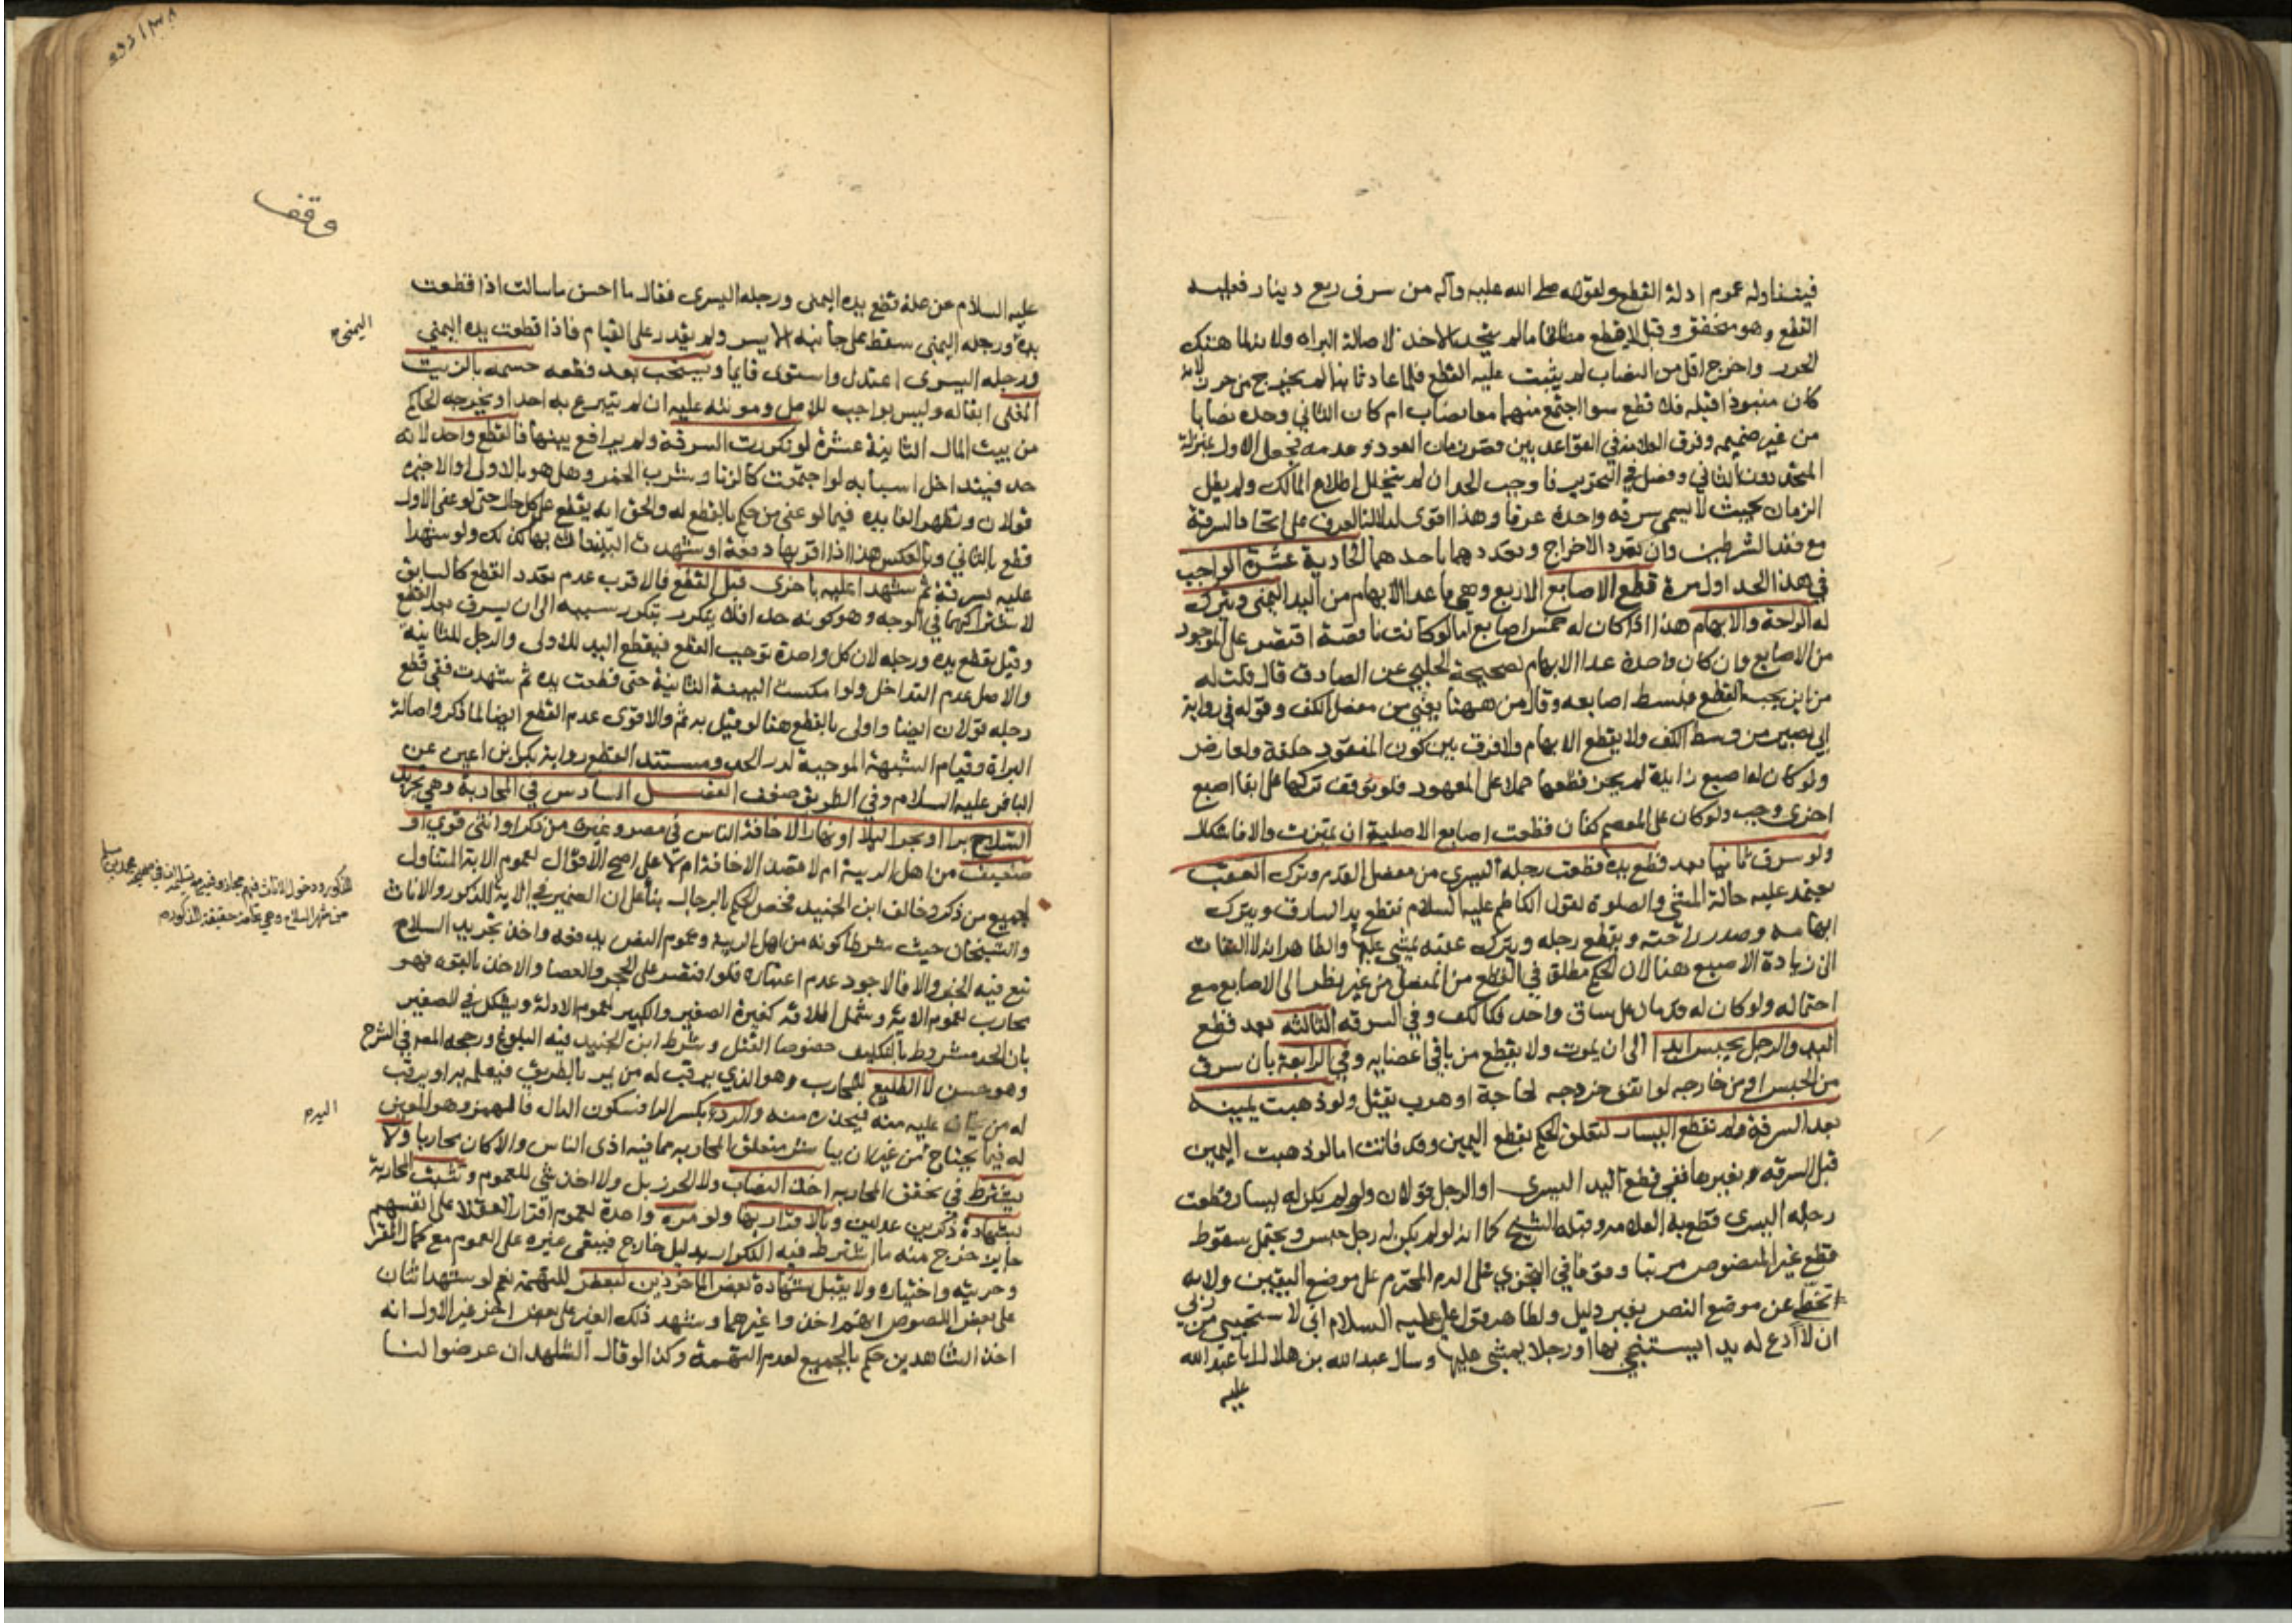 فيتناوله عموم ادلة القطع ولقوله صلى الله عليه وآله من سرق ربع دينار فعليه
القطع وهو متحقق وقيل لا قطع مطلقا مالم يتحد الاخذ لاصالة البراه ولانه لما هتك
الحرز واخرج اقل من النصاب لم يثبت عليه القطع فلما عاد ثانيا لم يخرج من حرز لانه
كان منبوذا قبله فلا قطع سوا اجتمع منهما معا نصاب ام كان الثاني وحده نصابا
من غير ضميمه وفرق العلامه في القواعد بين قصر زمان العود وعدمه فجعل الاول بمنزلة
المتحد دون الثاني وفصل في التحرير فاوجب الحد ان لم يتخلل اطلاع المالك ولم يطل
الزمان بحيث لا يسمى سرقه واحدة عرفا وهذا اقوى لدلالة العرف على اتحاد السرقة
مع فقد الشرطين وان تعدد الاخراج وتعددها باحدهما الحادية عشرة الواجب
في هذا الحد اول مرة قطع الاصابع الاربع وهي ما عدا الابهام من اليد اليمنى ويترك
له الراحة والابهام هذا اذا كان له خمس اصابع اما لو كانت ناقصة اقتصر على الموجود
من الاصابع وان كان واحدة عدا الابهام لصحيحة الحلبي عن الصادق قال قلت له
من اين يجب القطع فبسط اصابعه وقال من ههنا يعني من مفصل الكف وقوله في رواية
ابي بصير من وسط الكف ولا يقطع الابهام ولا فرق بين كون المفقود خلقة ولعارض
ولو كان له اصبع زايدة لم يجز قطعها حملا على المعهود فلو توقف تركها على ابقا اصبع
اخرى وجب ولو كان على المعصم كفان قطعت اصابع الاصلية ان تميزت والا فاشكال
ولو سرق ثانيا بعد قطع يده قطعت رجله اليسرى من مفصل القدم وترك العقب
يعتمد عليه حالة المشي والصلوة لقول الكاظم عليه السلام تقطع يد السارق ويترك
ابهامه وصدر راحته وتقطع رجله ويترك عقبه يمشي عليها والظاهر انه لا التفات
الى زيادة الاصبع هنا لان الحكم مطلق في القطع من المفصل من غير نظر الى الاصابع مع
احتماله ولو كان له قدمان على ساق واحد فكالكف وفي السرقه الثالثه بعد قطع
اليد والرجل يحبس ابدا الى ان يموت ولا يقطع من باقي اعضايه وفي الرابعة بان سرق
من الحبس او من خارجه لو اتفق خروجه لحاجة او هرب يقتل ولو ذهبت يمينه
بعد السرقة لم تقطع اليسار لتعلق الحكم بقطع اليمين وقد فاتت اما لو ذهبت اليمين
قبل السرقه بغيرها ففي قطع اليد اليسرى او الرجل قولان ولو لم يكن له يسار قطعت
رجله اليسرى قطع به العلامه وقبله الشيخ كما انه لو لم يكن له رجل حبس ويحتمل سقوط
قطع غير المنصوص مرتبا وقوفا في التجري على الدم المحترم على موضع اليقين ولانه
تخط عن موضع النص بغير دليل ولظاهر قول علي عليه السلام اني لا ستحيي من ربي
ان لا ادع له يدا يستنجي بها او رجلا يمشي عليها وسال عبد الله بن هلال ابا عبد الله
عليه
وقف
عليه السلام عن علة قطع يده اليمنى ورجله اليسرى فقال ما احسن ما سالت اذا قطعت
يده ورجله اليمنى سقط على جانبه الايسر ولم يقدر على القيام فاذا قطعت يده اليمني
اليمنى
ورجله اليسرى اعتدل واستوى قايما ويستحب بعد قطعه حسمه بالزيت
المغلى ابقاء له وليس بواجب للاصل ومونته عليه ان لم يتبرع به احد او يخرجه الحاكم
من بيت المال الثانية عشرة لو تكررت السرقة ولم يرافع بينهما فالقطع واحد لانه
حد فيتداخل اسبابه لو اجتمعت كالزنا وشرب الخمر وهل هو بالاولى او الاخيرة
قولان وتظهر الفايده فيما لو عفي من حكم بالقطع له والحق انه يقطع على كل حال حتى لو عفي الاول
قطع بالثاني وبالعكس هذا اذا اقر بها دفعة او شهدت البينات بها كذلك ولو شهدا
عليه بسرقة ثم شهدا عليه باخرى قبل القطع فالاقرب عدم تعدد القطع كالسابق
لاشتراكهما في الوجه وهو كونه حدا فلا يتكرر بتكرر سببه الى ان يسرق بعد القطع
وقيل يقطع يده ورجله لان كل واحدة توجب القطع فيقطع اليد للاولى والرجل للثانية
والاصل عدم التداخل ولو امسكت البينة الثانية حتى قطعت يده ثم شهدت ففي قطع
رجله قولان ايضا واولى بالقطع هنا لو قيل به ثم والاقوى عدم القطع ايضا لما ذكر واصالة
البراة وقيام الشبهة الموجبة لدر الحد ومستند القطع رواية بكير بن اعين عن
الباقر عليه السلام وفي الطريق ضعف الفصل السادس في المحاربة وهي تجريد
السلاح برا او بحرا ليلا او نهارا لاخافة الناس في مصر وغيره من ذكر او انثى قوي او
ضعيف من اهل الريبة ام لا قصد الاخافة ام لا على اصح الاقوال لعموم الاية المتناول
لجميع من ذكر وخالف ابن الجنيد فخص الحكم بالرجال بناء على ان الضمير في الاية للذكور والاناث
والشيخان حيث شرطا كونه من اهل الريبة وعموم النص يدفعه واخذ تجريد السلاح
تبع فيه الخبر والا فالاجود عدم اعتباره فلو اقتصر على الحجر والعصا والاخذ بالقوه فهو
محارب لعموم الاية وشمل اطلاقه كغيره الصغير والكبير لعموم الادلة ويشكل في الصغير
بان الحد مشروط بالتكليف خصوصا القتل وشرط ابن الجنيد فيه البلوغ ورجحه المصر في الشرح
وهو حسن لا الطليع للمحارب وهو الذي يرقب له من يمر بالطريق فيعلمه به او يرقب
له من يخاف عليه منه فيحذره منه والردء بكسر الرا فسكون الدال فالهمز وهو المعين
له فيما يحتاج من غير ان يباشر متعلق المحاربه مما فيه اذى الناس والا كان محاربا ولا
يشترط في تحقق المحاربه اخذ النصاب ولا الحرز بل ولا اخذ شي للعموم وتثبت المحاربة
بشهادة ذكرين عدلين وبالاقرار بها ولو مره واحدة لعموم اقرار العقلا على انفسهم
جايز خرج منه ما اشترط فيه التكرار بدليل خارج فيبقى غيره على العموم مع كمال المقر
وحريته واختياره ولا يقبل شهادة بعض الماخوذين لبعض للتهمة نعم لو شهد اثنان
على بعض اللصوص انهم اخذوا غيرهما وشهد ذلك الغير على بعض اخر غير الاول انه
اخذ الشاهدين حكم بالجميع لعدم التهمة وكذا لو قال الشاهدان عرضوا لنا